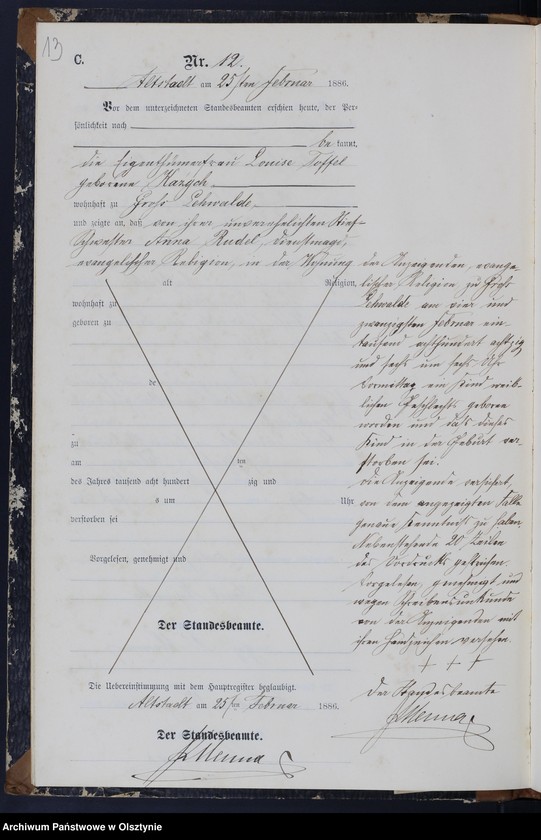 13
C.
Nr. 12.
Altstadt am 25ten Februar 1886.
Vor dem unterzeichneten Standesbeamten erschien heute, der Per-
sönlichkeit nach
be kannt,
die Eigenthümerfrau Louise Toffel
geborene
wohnhaft zu Groß Lehwalde
und zeigte an, daß von ihrer unverehelichten Stief-
schwester Anna Rudel, Dienstmagd,
evangelischer Religion, in der Wohnung der Anzeigenden, evange-
alt Religion,
lischer Religion zu Groß
wohnhaft zu
Lehwalde am vier und
geboren zu
zwanzigsten Februar ein-
tausend achthundert achtzig
und sechs um sechs Uhr
Vormittag ein Kind weib-
de
lichen Geschlechts geboren
worden und daß dieses
zu
Kind in der Geburt ver-
am um
storben sei.
des Jahres tausend acht hundert zig und
Die Anzeigende versichert,
s um Uhr
von dem angezeigten Falle
verstorben sei
genaue Kenntniß zu haben.
Nebenstehende 20 Zeilen
Vorgelesen, genehmigt und
des Vordrucks gestrichen.
Vorgelesen, genehmigt und
wegen Schreibensunkunde
Der Standesbeamte.
von der Anzeigenden mit
ihren Handzeichen versehen.
+ + +
Die Uebereinstimmung mit dem Hauptregister beglaubigt.
Der Standesbeamte
Altstadt am 25ten Februar 1886.
Menna
Der Standesbeamte.
Menna
Archiwum Państwowe w Olsztynie